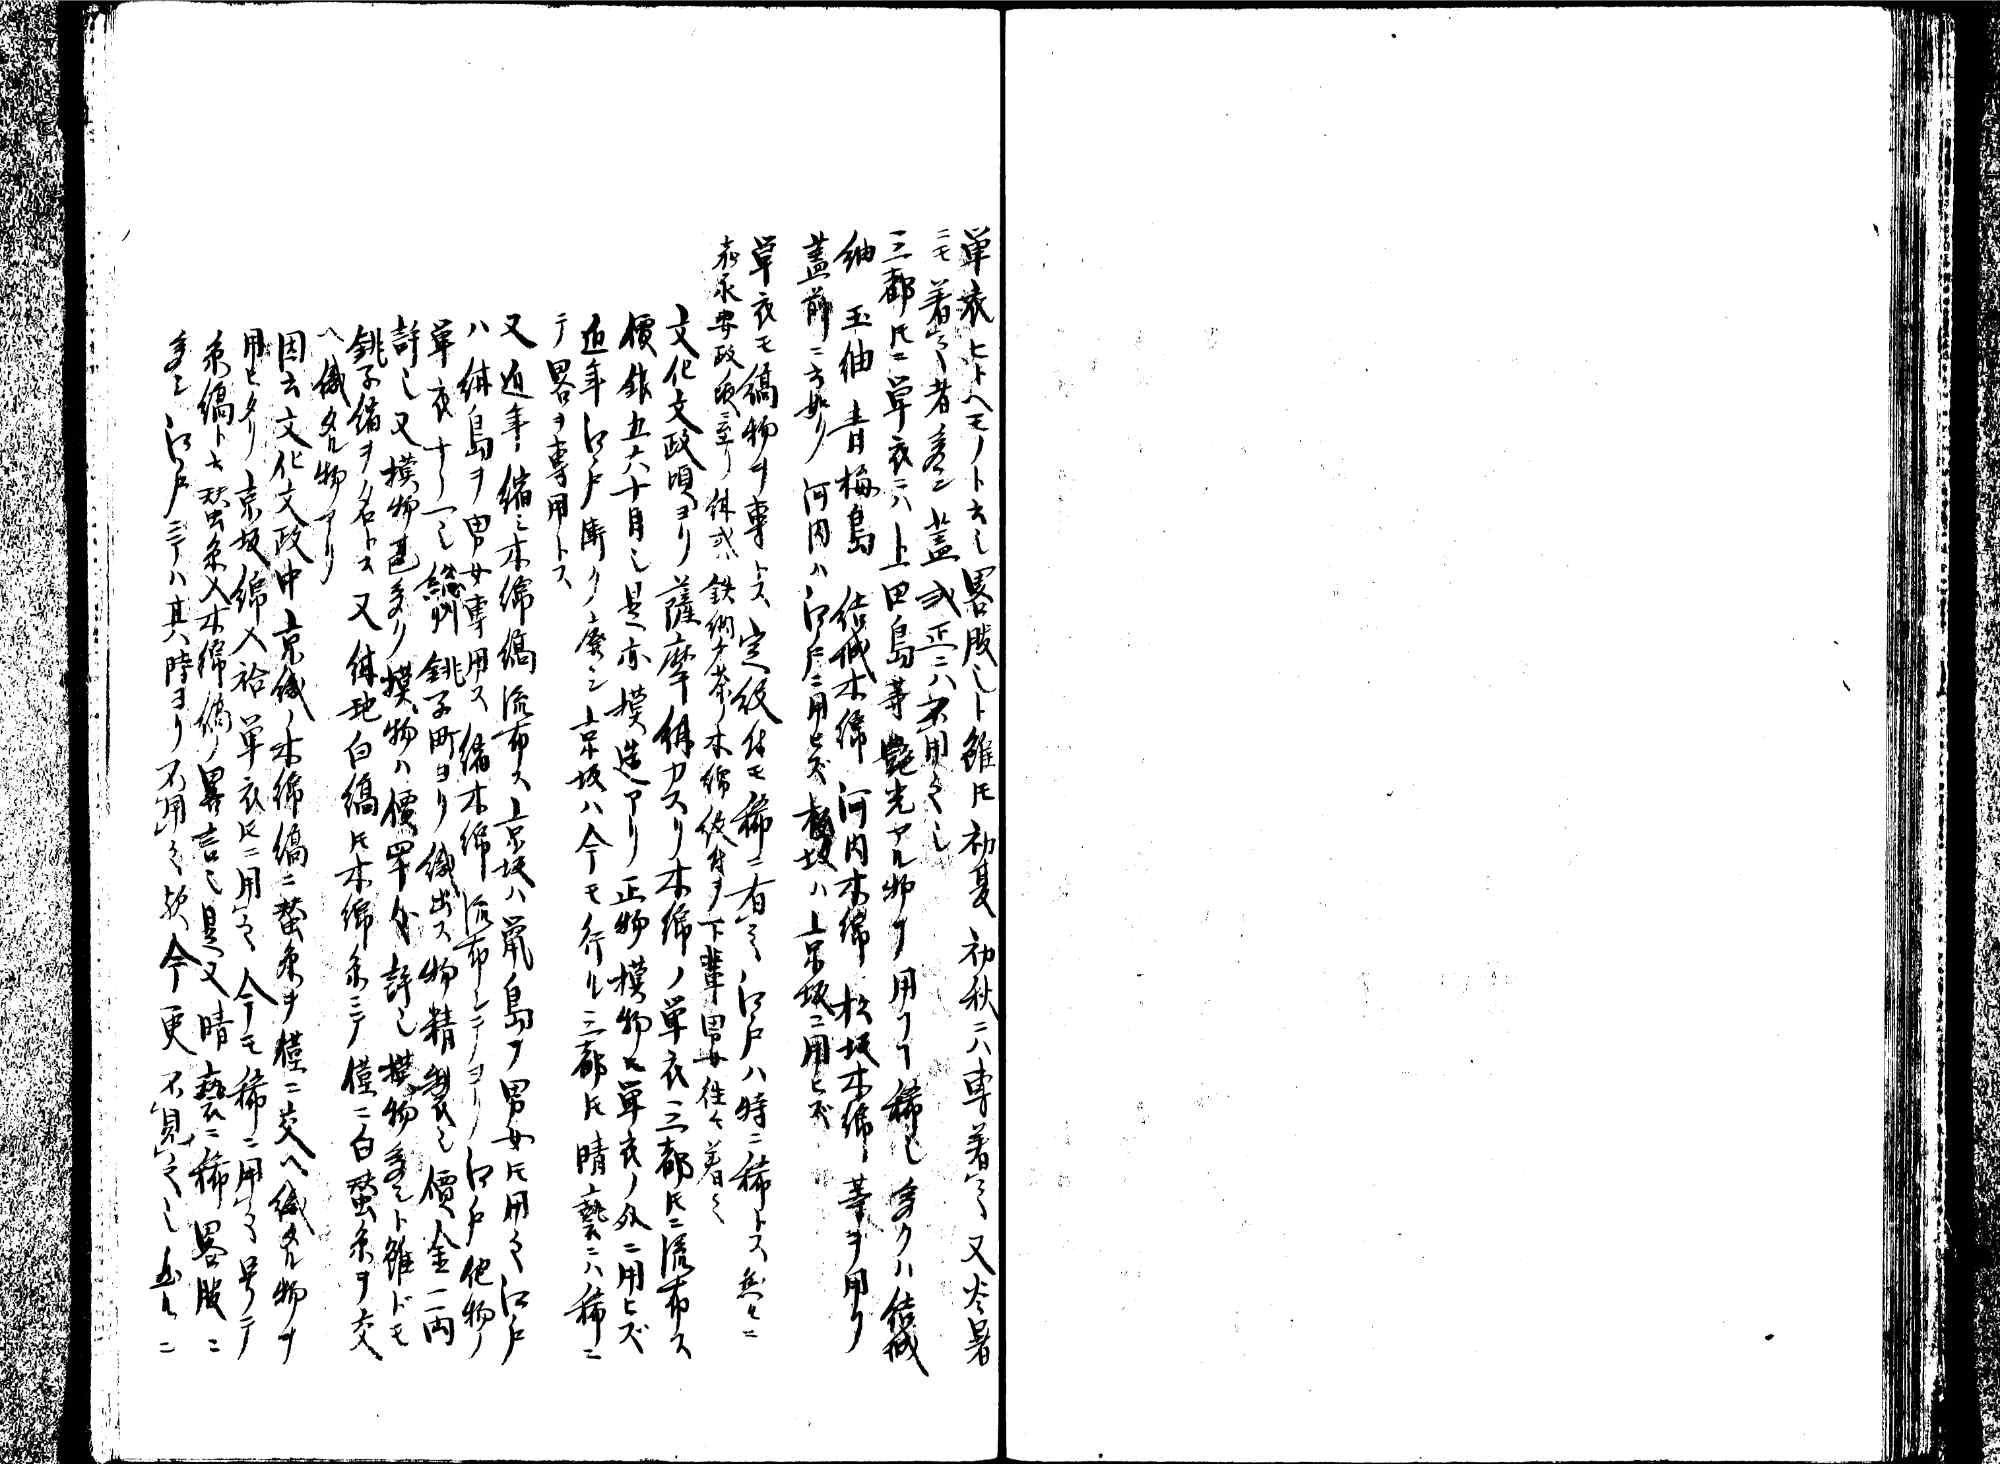 単衣ヒトヘモノト云也畧服也ト雖𪜈初夏初秋ニハ専着之又炎暑
ニモ着之者多シ蓋或正ニハ不用之也
三都𪜈ニ単衣ニハ上田島等艶光アル物ヲ用フヿ稀也多クハ結城
紬 玉紬 青梅島 結城木綿 河内木綿 松坂木綿等ヲ用ク
蓋前ニ云如ク河内ハ江戸ニ用ヒズ松坂ハ京坂ニ用ヒズ
単衣モ縞物ヲ専トス定紋付モ稀ニ有之江戸ハ時ニ稀トス然ルニ
嘉永安政頃ニ至リ紺或ハ鉄納戸茶ノ木綿紋付ヲ下輩男女往々着之
文化文政頃ヨリ薩摩絣カスリ木綿ノ単衣三都𪜈ニ流布ス
價銀五六十目也是亦模造アリ正物模物𪜈単衣ノ外ニ用ヒズ
近年江戸漸クニ廃シ京坂ハ今モ行ル三都𪜈晴褻ニハ稀ニ
テ畧ヲ専用トス
又近年縮ミ木綿縞流布ス京坂ハ鼠ノ島ヲ男女𪜈用之江戸
ハ紺島ヲ男女専用ス縮木綿流布シテヨリ江戸他物ノ
単衣十ノ一也総州銚子町ヨリ織出ス物精製也價金一両
許也又模物甚多リ模物ハ價半分許也模物多シト雖ドモ
銚子縮ヲ名トス又紺地白縞𪜈木綿糸ニテ僅ニ白蚕糸ヲ交
ヘ織タル物アリ
因云文化文政中京織ノ木綿縞ニ蚕糸ヲ僅ニ交ヘ織タル物ヲ
用ヒタリ京坂綿入袷単衣𪜈ニ用之今モ稀ニ用之号テ
糸縞ト云蚕糸入木綿縞ノ畧言也是又晴褻ニ稀畧服ニ
多シ江戸ニテハ其時ヨリ不用之歟今更不見之也